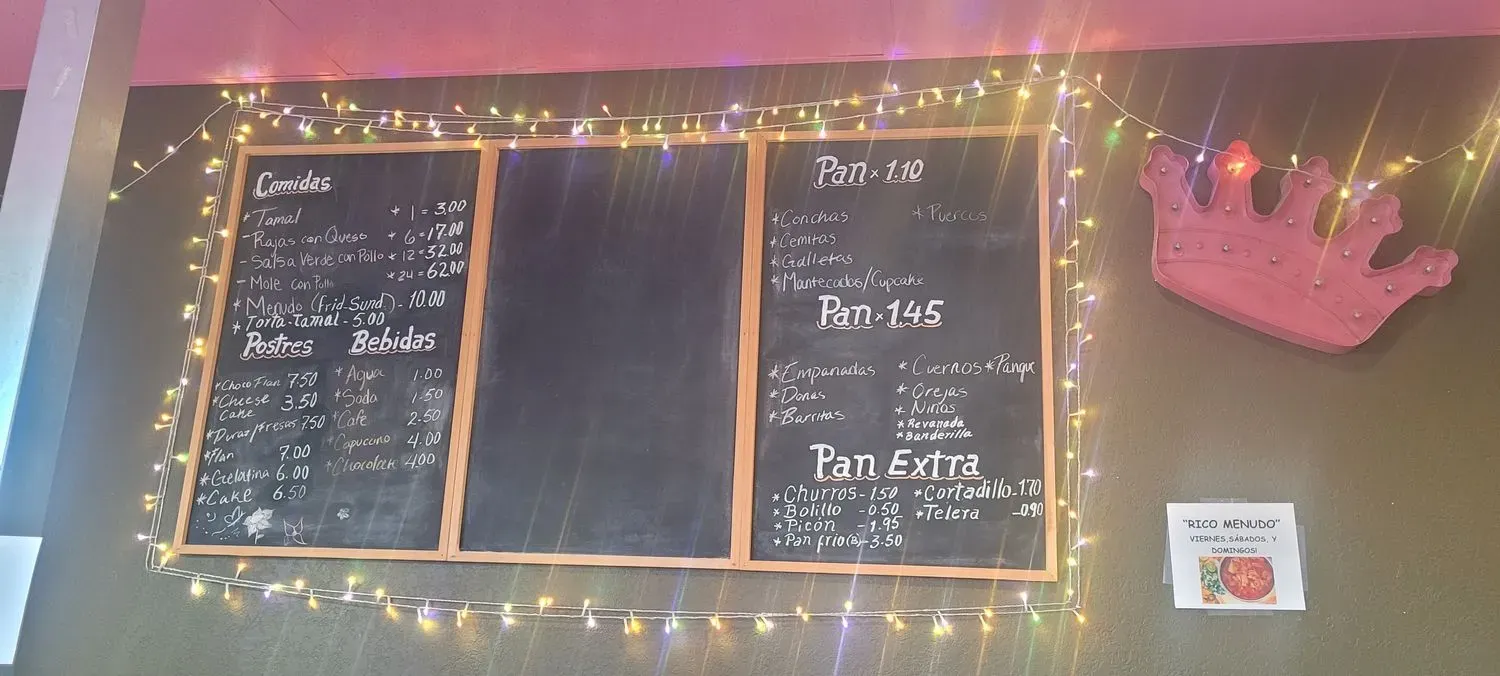 Comidas
* Tamal * 1 = 3.00
- Rajas con Queso * 6 = 17.00
- Salsa Verde con Pollo * 12 = 32.00
- Mole con Pollo * 24 = 62.00
* Menudo (Frid-Sund.) - 10.00
* Torta-Tamal - 5.00
Postres
* Choco Flan 7.50
* Cheese Cake 3.50
* Duraz/fresas 7.50
* Flan 7.00
* Gelatina 6.00
* Cake 6.50
Bebidas
* Agua 1.00
* Soda 1.50
* Cafe 2.50
* Capuccino 4.00
* Chocolate 4.00
Pan × 1.10
* Conchas * Puercos
* Cemitas
* Galletas
* Mantecados/Cupcake
Pan × 1.45
* Empanadas * Cuernos * Panqu
* Donas * Orejas
* Barritas * Niños
* Revanada
* Banderilla
Pan Extra
* Churros - 1.50 * Cortadillo - 1.70
* Bolillo - 0.50 * Telera - 0.90
* Picón - 1.95
* Pan frio (B) - 3.50
"RICO MENUDO"
VIERNES, SÁBADOS, Y
DOMINGOS!